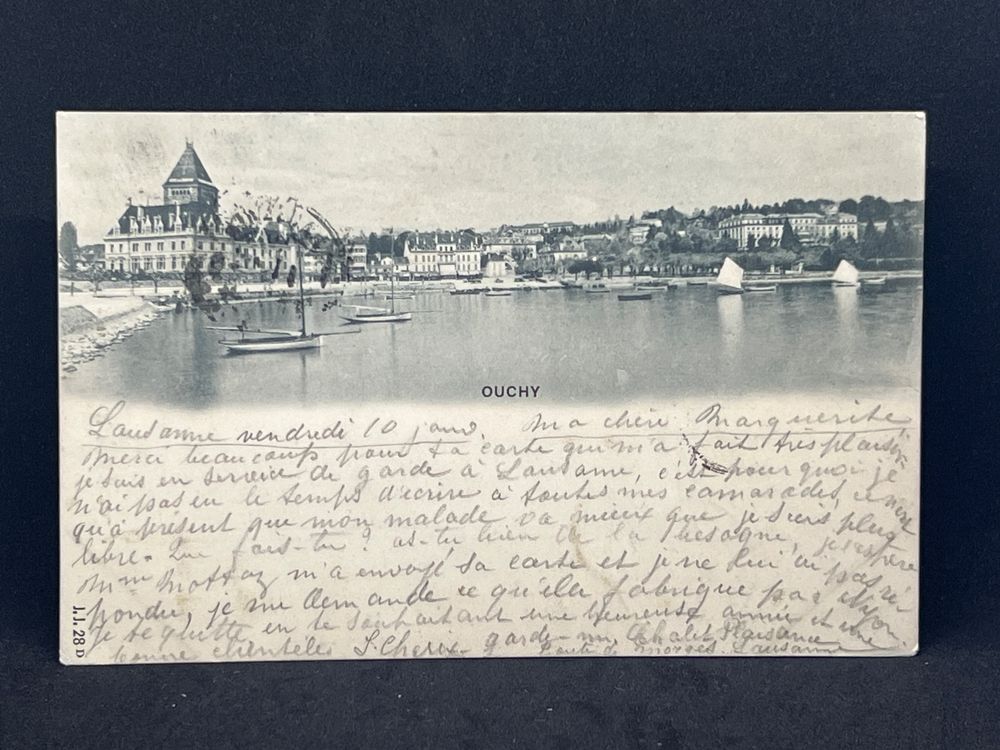 OUCHY
Lausanne vendredi 10 janv. Ma chère Marguerite
Merci beaucoup pour ta carte qui m'a fait très plaisir.
je suis en service de garde à Lausanne, c'est pourquoi je
n'ai pas eu le temps d'écrire à toutes mes camarades, ce n'est
qu'à présent que mon malade va mieux que je suis plus
libre. Que fais-tu? as-tu bien de la besogne, j'espère
Mme Mottaz m'a envoyé sa carte et je ne lui ai pas ré-
pondu, je me demande ce qu'elle fabrique par
je te quitte en te souhaitant une heureuse année et une
bonne clientèle S. Cherix garde-m. Chalet Plaisance
Route de Morges. Lausanne
J.J. 28 D